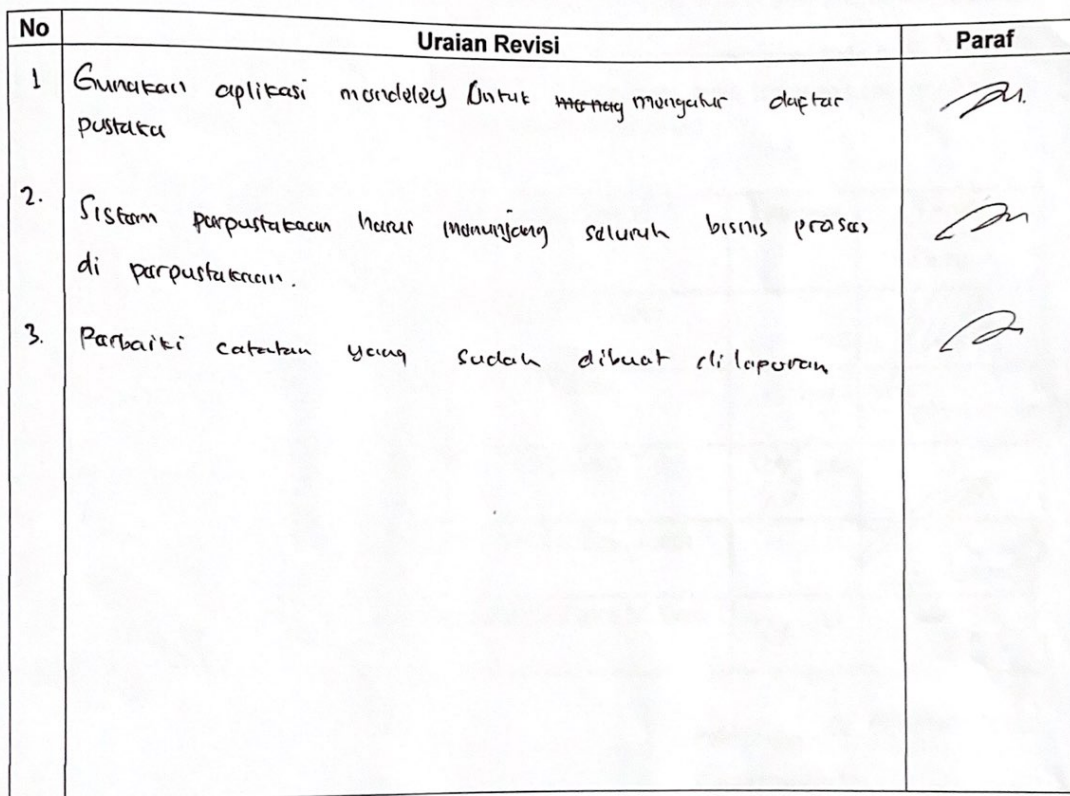 No Uraian Revisi Paraf
1 Gunakan aplikasi mendeley Untuk mengatur daftar
pustaka
2. Sistem perpustakaan harus menunjang seluruh bisnis proses
di perpustakaan.
3. Perbaiki catatan yang sudah dibuat di laporan